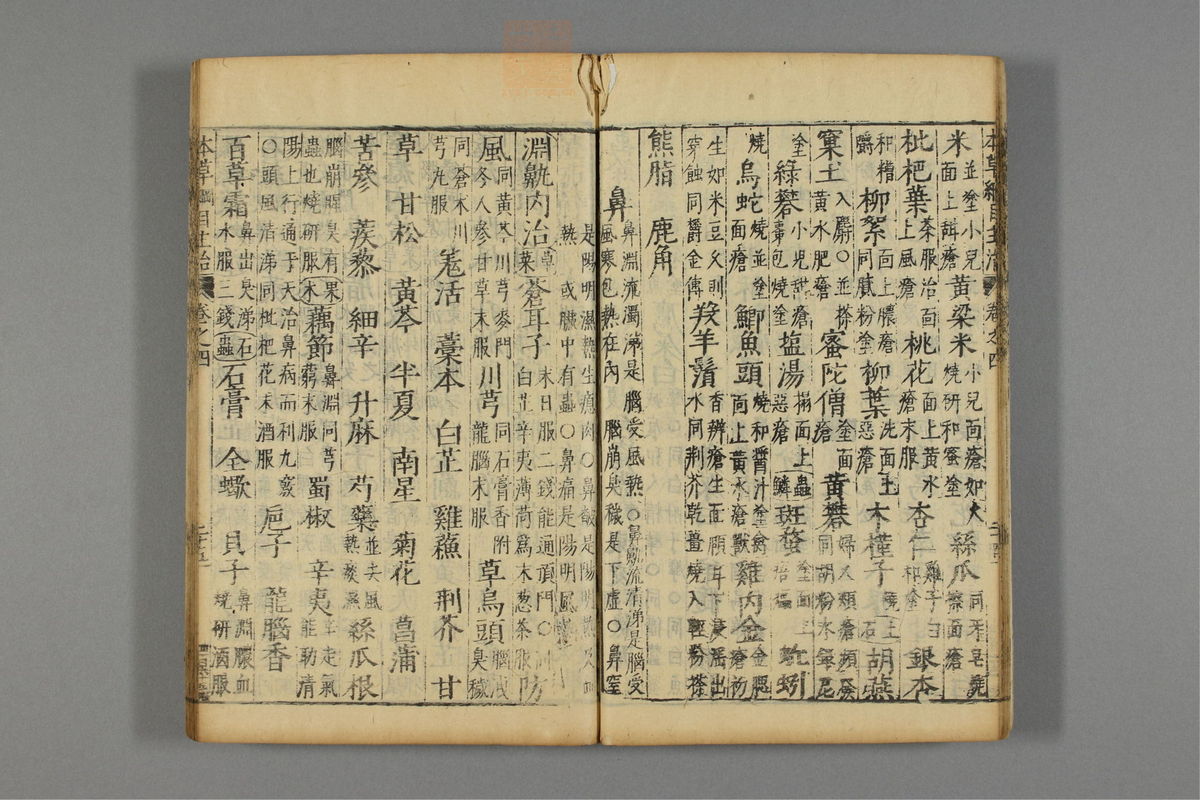 本草綱目主治 卷之四
米並塗小兒面上甜瘡 黃梁米小兒面瘡如火燒研和蜜塗 絲瓜同牙皂燒擦面瘡
枇杷葉茶服治面上風瘡 桃花面上黃水瘡末服 杏仁雞子白和塗 銀杏
和糟嚼 柳絮面上膿瘡同膩粉塗 柳葉洗面上惡瘡 木槿子燒 胡燕
窠土入麝○並搽黃水肥瘡 蜜陀僧塗面瘡 黃礬婦人頰瘡頻發同胡粉水銀
塗 綠礬小兒甜瘡棗包燒塗 塩湯搨面上惡瘡 蟲鱗 斑蝥塗面上 蚯蚓
燒 烏蛇燒並塗面瘡 鯽魚頭燒和醬汁塗面上黃水瘡 禽獸 雞內金金腮瘡初
生如米豆久則穿蝕同鬱金傅 羖羊鬚香瓣瘡生面頤耳下浸淫出水同荆芥乾薑燒入輕粉搽
熊脂 鹿角
鼻 鼻淵流濁涕是腦受風熱○鼻鼽流清涕是腦受風寒包熱在內 腦崩臭穢是下虛○鼻窒
是陽明濕熱生瘜肉○鼻齇是陽明熱及血熱 或臟中有蟲○鼻痛是陽明風熱
淵鼽內治 草菜 蒼耳子末日服二錢能通頂門○同白芷辛夷薄荷爲末葱茶服 防
風同黃芩川芎麥門冬人參甘草末服 川芎同石膏香附龍腦末服 草烏頭腦泄臭穢
同蒼朮川芎丸服 羌活 藁本 白芷 雞蘇 荆芥 甘
草 甘松 黃芩 半夏 南星 菊花 菖蒲
苦參 蒺藜 細辛 升麻 芍藥並去風熱痰濕 絲瓜根
腦崩腥臭有蟲也燒研服 果木 藕節鼻淵同芎藭末服 蜀椒 辛夷辛走氣能助清
陽上行通于天治鼻病而利九竅○頭風清涕同枇杷花末酒服 巵子 龍腦香
百草霜鼻出臭涕水服三錢 石蟲 石膏 全蠍 貝子鼻淵膿血燒研酒服
本草綱目主治 卷之四